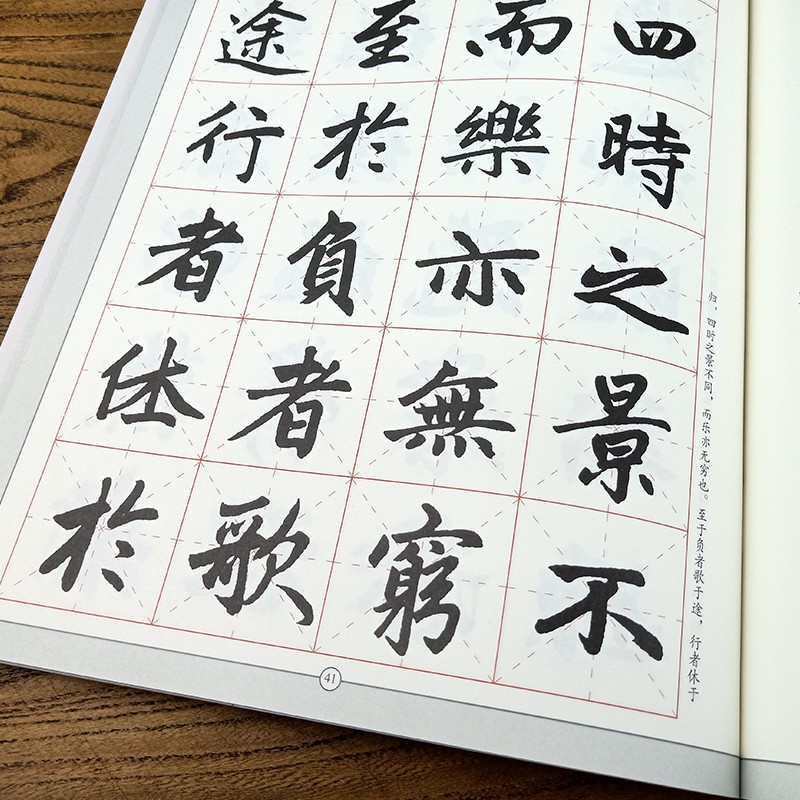 四時之景不
而樂亦無窮
至於負者歌
途行者休於
归，四时之景不同，而乐亦无穷也。至于负者歌于途，行者休于
41